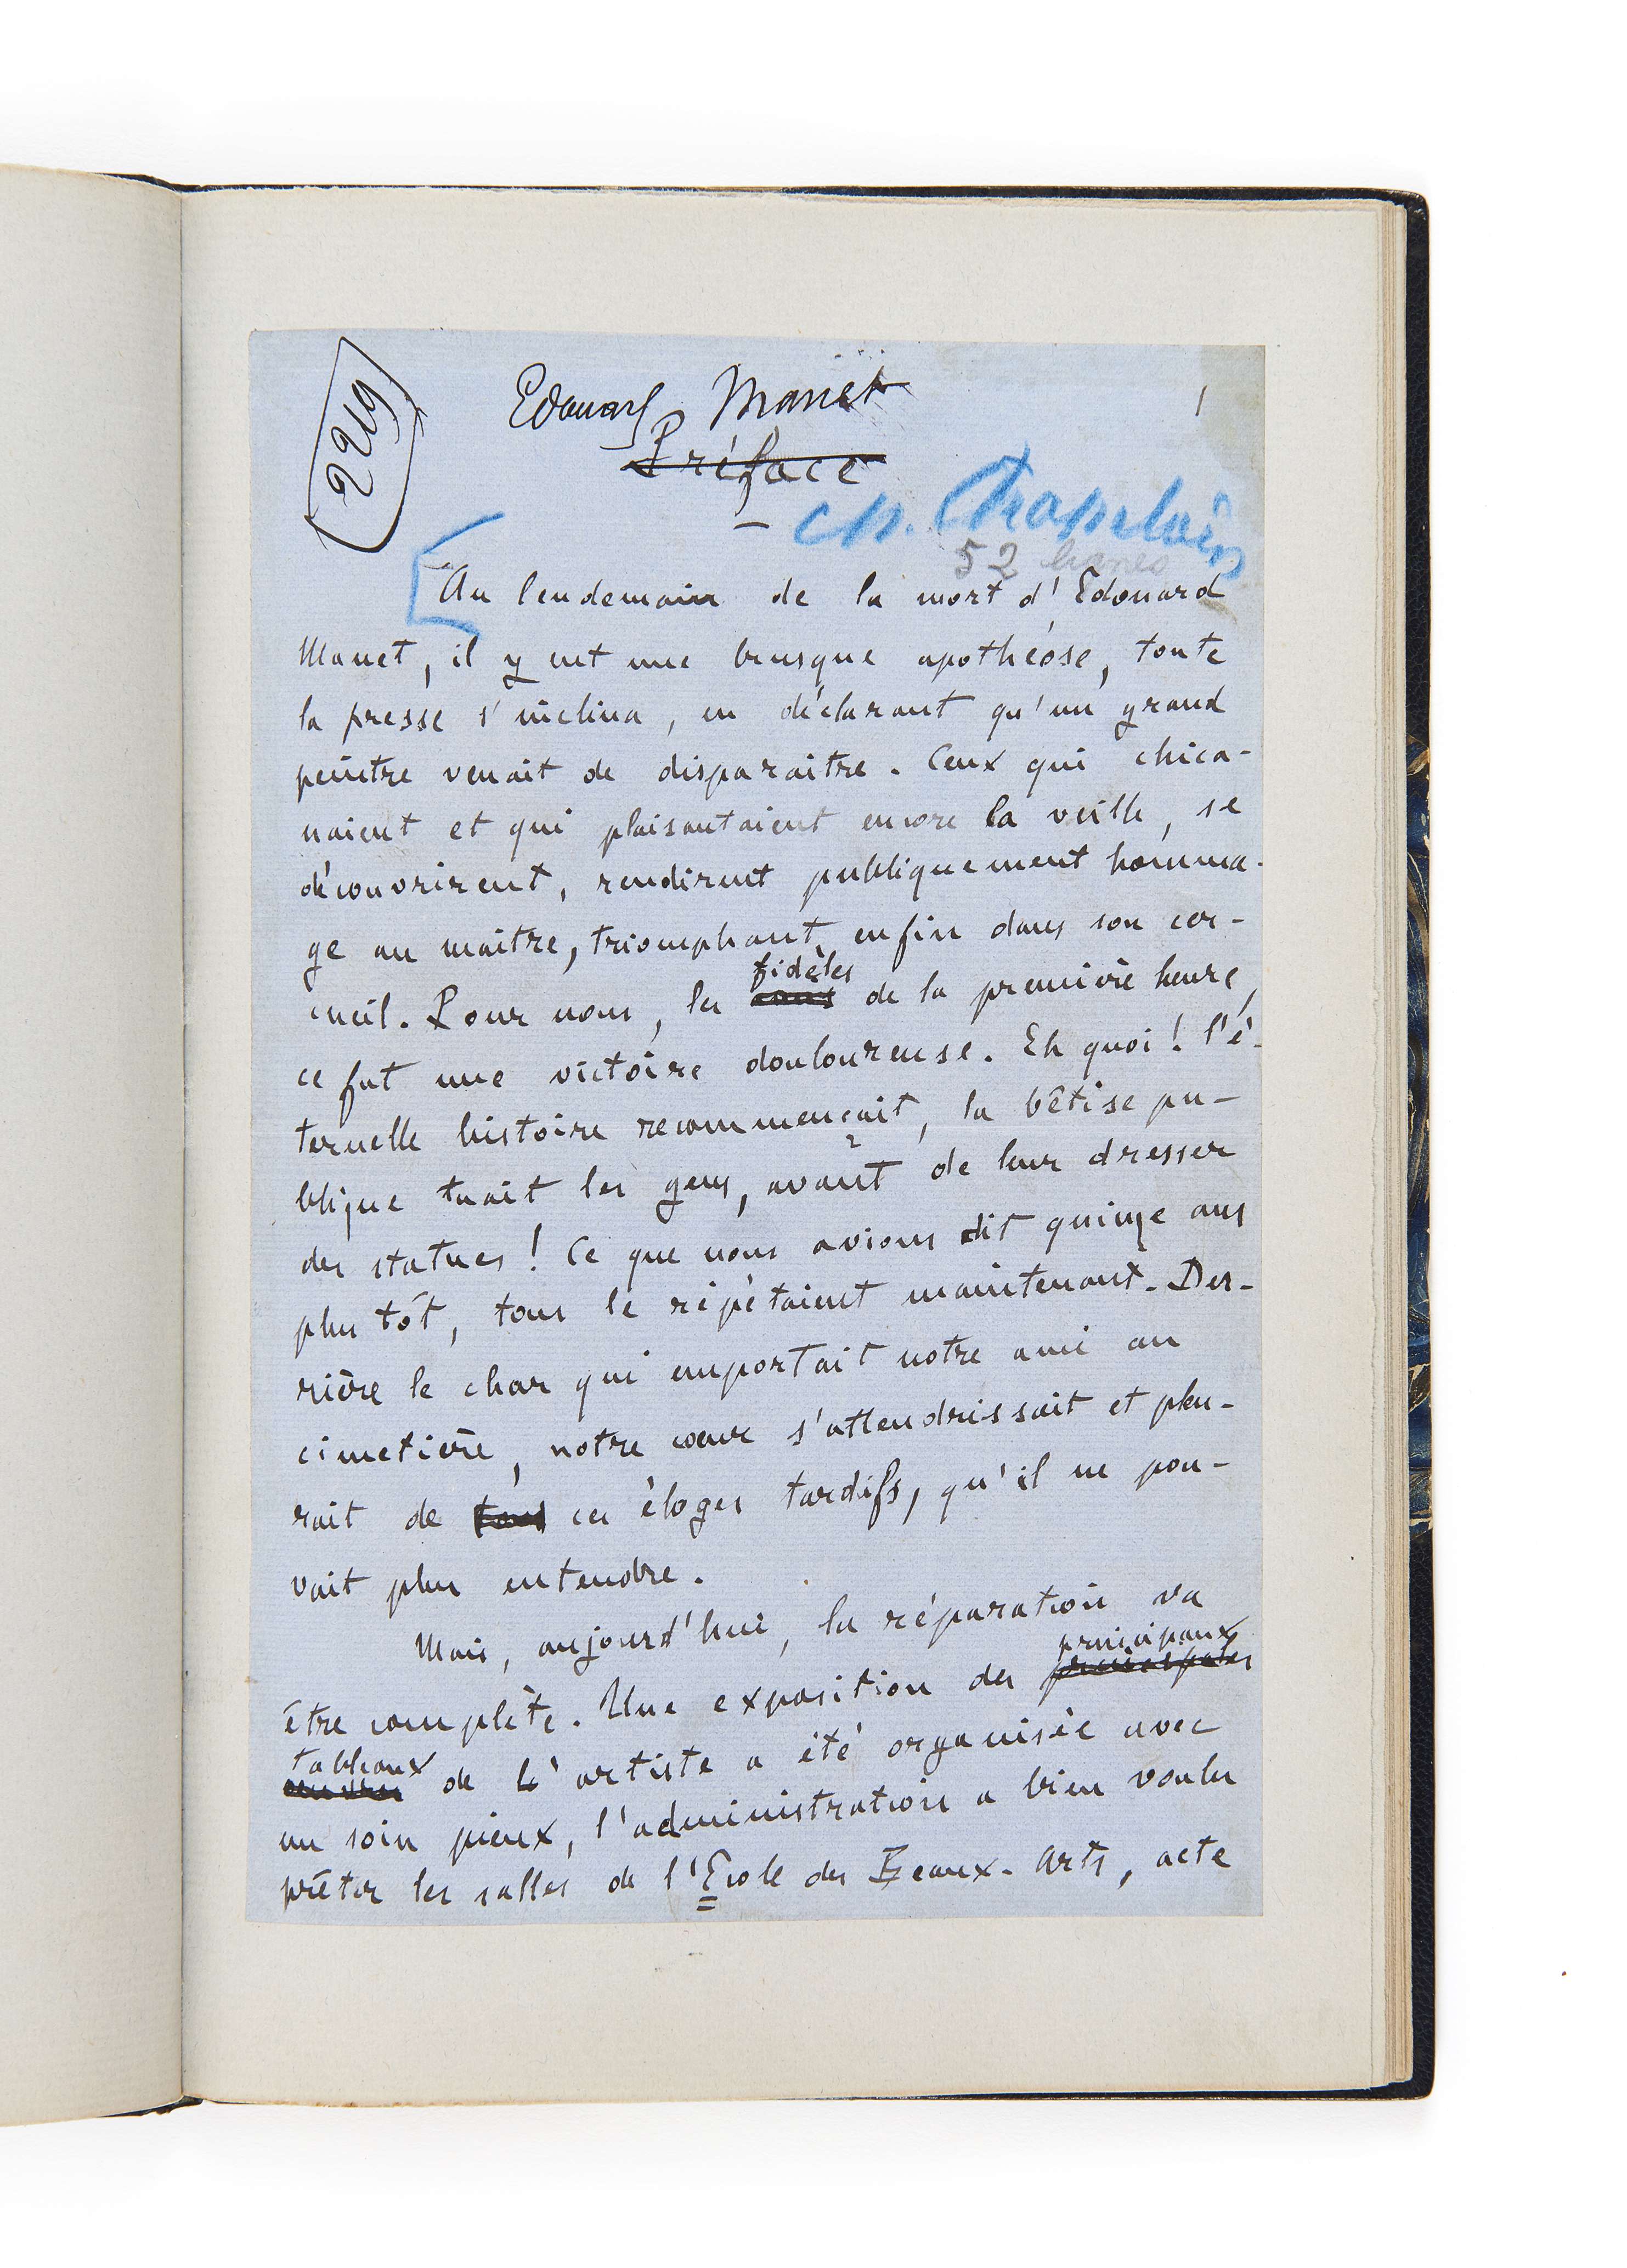 2249
1
Edouard Manet
Préface
ch. Chapelain
52 lignes
Au lendemain de la mort d'Edouard
Manet, il y eut une brusque apothéose, toute
la presse s'inclina, en déclarant qu'un grand
peintre venait de disparaître. Ceux qui chica-
naient et qui plaisantaient encore la veille, se
découvrirent, rendirent publiquement homma-
ge au maître, triomphant enfin dans son cer-
fidèles
cueil. Pour nous, les de la première heure,
ce fut une victoire douloureuse. Eh quoi! l'é-
ternelle histoire recommençait, la bêtise pu-
blique tuait les gens, avant de leur dresser
des statues! Ce que nous avions dit quinze ans
plus tôt, tous le répétaient maintenant. Der-
rière le char qui emportait notre ami au
cimetière, notre cœur s'attendrissait et pleu-
rait de tous ces éloges tardifs, qu'il ne pou-
vait plus entendre.
Mais, aujourd'hui, la réparation va
principaux
être complète. Une exposition des principales
tableaux
œuvres de l'artiste a été organisée avec
un soin pieux, l'administration a bien voulu
prêter les salles de l'Ecole des Beaux-Arts, acte